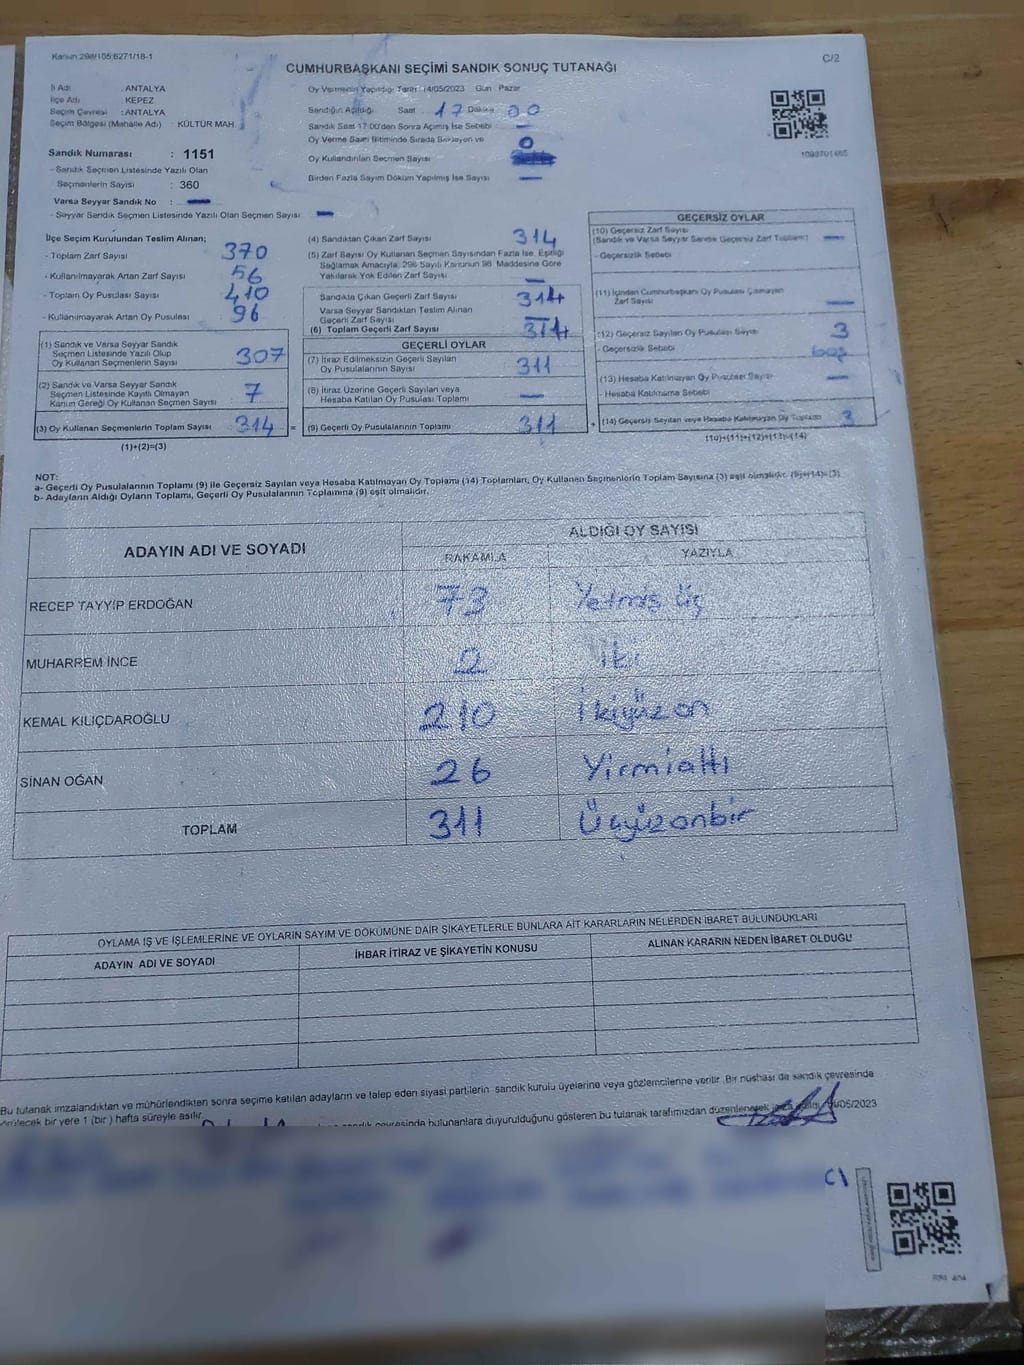 Kanun 298/105;6271/18-1
C/2
CUMHURBAŞKANI SEÇİMİ SANDIK SONUÇ TUTANAĞI
İl Adı : ANTALYA
İlçe Adı : KEPEZ
Seçim Çevresi : ANTALYA
Seçim Bölgesi (Mahalle Adı) : KÜLTÜR MAH.
Sandık Numarası : 1151
- Sandık Seçmen Listesinde Yazılı Olan
Seçmenlerin Sayısı : 360
Varsa Seyyar Sandık No : —
- Seyyar Sandık Seçmen Listesinde Yazılı Olan Seçmen Sayısı : —
Oy Vermenin Yapıldığı Tarih 14/05/2023 Gün Pazar
Sandığın Açıldığı Saat 17 Dakika 00
Sandık Saat 17:00'den Sonra Açılmış İse Sebebi —
Oy Verme Saati Bitiminde Sırada Bekleyen ve 0
Oy Kullandırılan Seçmen Sayısı
Birden Fazla Sayım Döküm Yapılmış İse Sayısı —
İlçe Seçim Kurulundan Teslim Alınan;
- Toplam Zarf Sayısı 370
- Kullanılmayarak Artan Zarf Sayısı 56
- Toplam Oy Pusulası Sayısı 410
- Kullanılmayarak Artan Oy Pusulası 96
(1) Sandık ve Varsa Seyyar Sandık
Seçmen Listesinde Yazılı Olup
Oy Kullanan Seçmenlerin Sayısı 307
(2) Sandık ve Varsa Seyyar Sandık
Seçmen Listesinde Kayıtlı Olmayan
Kanun Gereği Oy Kullanan Seçmen Sayısı 7
(3) Oy Kullanan Seçmenlerin Toplam Sayısı 314 =
(1)+(2)=(3)
(4) Sandıktan Çıkan Zarf Sayısı 314
(5) Zarf Sayısı Oy Kullanan Seçmen Sayısından Fazla İse, Eşitliği
Sağlamak Amacıyla, 298 Sayılı Kanunun 98. Maddesine Göre
Yakılarak Yok Edilen Zarf Sayısı —
Sandıkta Çıkan Geçerli Zarf Sayısı 314
Varsa Seyyar Sandıktan Teslim Alınan
Geçerli Zarf Sayısı —
(6) Toplam Geçerli Zarf Sayısı 314
GEÇERLİ OYLAR
(7) İtiraz Edilmeksizin Geçerli Sayılan
Oy Pusulalarının Sayısı 311
(8) İtiraz Üzerine Geçerli Sayılan veya
Hesaba Katılan Oy Pusulası Toplamı —
(9) Geçerli Oy Pusulalarının Toplamı 311 +
GEÇERSİZ OYLAR
(10) Geçersiz Zarf Sayısı
(Sandık ve Varsa Seyyar Sandık Geçersiz Zarf Toplamı) —
- Geçersizlik Sebebi
(11) İçinden Cumhurbaşkanı Oy Pusulası Çıkmayan
Zarf Sayısı —
(12) Geçersiz Sayılan Oy Pusulası Sayısı 3
- Geçersizlik Sebebi
(13) Hesaba Katılmayan Oy Pusulası Sayısı —
- Hesaba Katılmama Sebebi
(14) Geçersiz Sayılan veya Hesaba Katılmayan Oy Toplamı 3
(10)+(11)+(12)+(13)=(14)
NOT:
a- Geçerli Oy Pusulalarının Toplamı (9) ile Geçersiz Sayılan veya Hesaba Katılmayan Oy Toplamı (14) Toplamları, Oy Kullanan Seçmenlerin Toplam Sayısına (3) eşit olmalıdır. (9)+(14)=(3)
b- Adayların Aldığı Oyların Toplamı, Geçerli Oy Pusulalarının Toplamına (9) eşit olmalıdır.
ADAYIN ADI VE SOYADI ALDIĞI OY SAYISI
RAKAMLA YAZIYLA
RECEP TAYYİP ERDOĞAN 73 Yetmiş üç
MUHARREM İNCE 2 iki
KEMAL KILIÇDAROĞLU 210 ikiyüzon
SİNAN OĞAN 26 Yirmialtı
TOPLAM 311 Üçyüzonbir
OYLAMA İŞ VE İŞLEMLERİNE VE OYLARIN SAYIM VE DÖKÜMÜNE DAİR ŞİKAYETLERLE BUNLARA AİT KARARLARIN NELERDEN İBARET BULUNDUKLARI
ADAYIN ADI VE SOYADI İHBAR İTİRAZ VE ŞİKAYETİN KONUSU ALINAN KARARIN NEDEN İBARET OLDUĞU
Bu tutanak imzalandıktan ve mühürlendikten sonra seçime katılan adayların ve talep eden siyasi partilerin sandık kurulu üyelerine veya gözlemcilerine verilir. Bir nüshası da sandık çevresinde
görülecek bir yere 1 (bir) hafta süreyle asılır.
çevresinde bulunanlara duyurulduğunu gösteren bu tutanak tarafımızdan düzenlenerek /05/2023